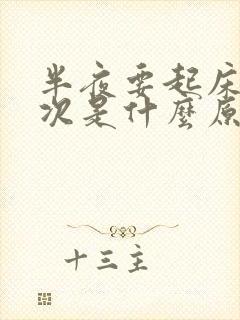 半夜要起床
次是什麼原
十三主